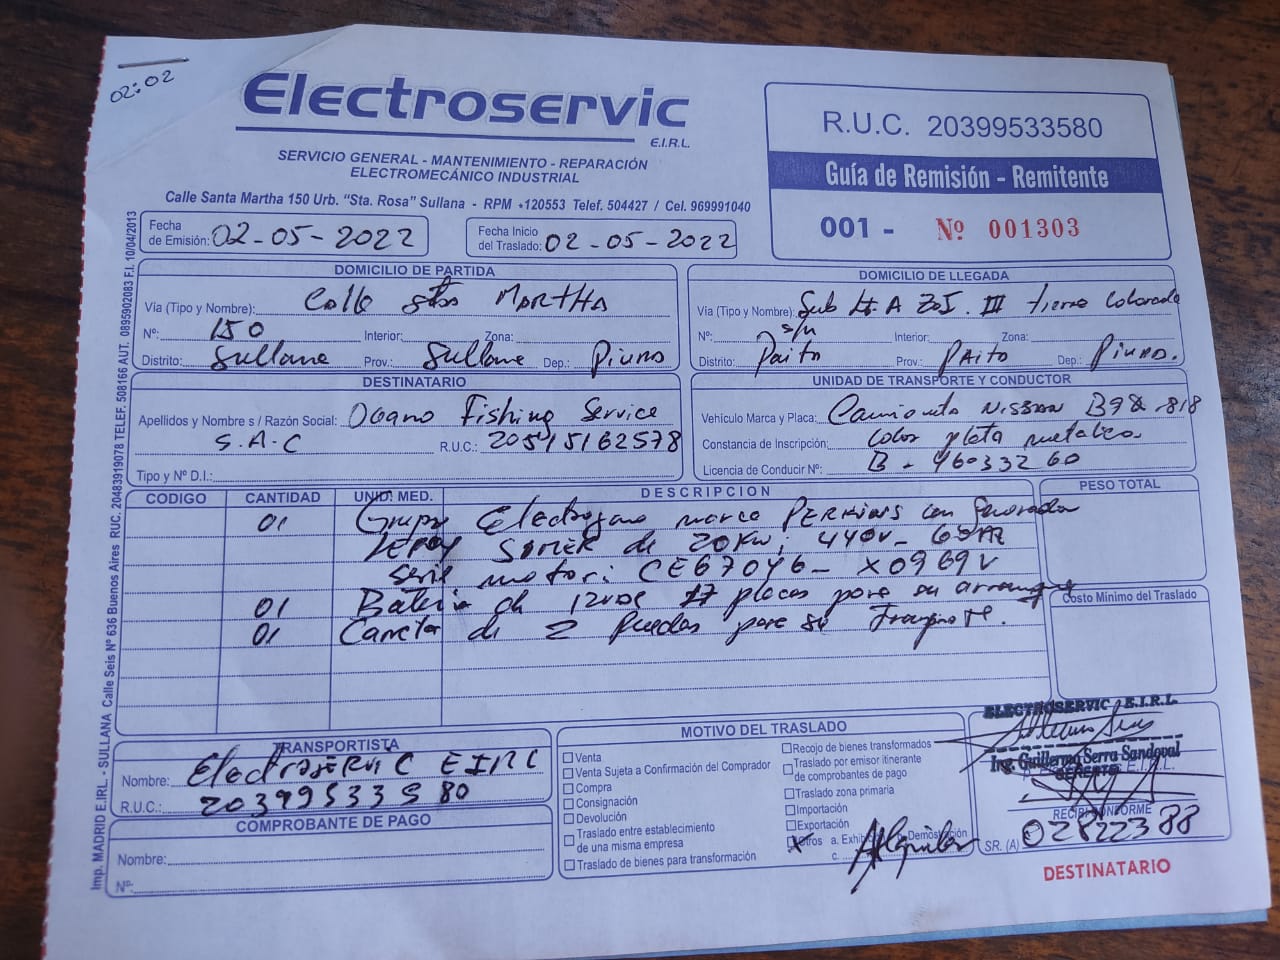 02:02
Electroservic
E.I.R.L.
SERVICIO GENERAL - MANTENIMIENTO - REPARACIÓN
ELECTROMECÁNICO INDUSTRIAL
Calle Santa Martha 150 Urb. "Sta. Rosa" Sullana - RPM *120553 Telef. 504427 / Cel. 969991040
R.U.C. 20399533580
Guía de Remisión - Remitente
001 - Nº 001303
Fecha de Emisión: 02-05-2022
Fecha Inicio del Traslado: 02-05-2022
DOMICILIO DE PARTIDA
Vía (Tipo y Nombre): Calle Sta MARTHA
Nº: 150 Interior: Zona:
Distrito: Sullana Prov.: Sullana Dep.: Piura
DOMICILIO DE LLEGADA
Vía (Tipo y Nombre): Sub Lt. A ZOI. III tierra Colorada
Nº: s/n Interior: Zona:
Distrito: Paita Prov.: PAITA Dep.: Piura.
DESTINATARIO
Apellidos y Nombre s / Razón Social: Fishing Service
S.A.C R.U.C.: 20545162578
Tipo y Nº D.I.:
UNIDAD DE TRANSPORTE Y CONDUCTOR
Vehículo Marca y Placa: Camioneta NISSAN 818
Constancia de Inscripción: color plata metalico
Licencia de Conducir Nº: B-46033260
CODIGO CANTIDAD UNID. MED. DESCRIPCION PESO TOTAL
01 Grupo Electrogeno marca PERKINS con Generador
LEROY SOMER de 20Kw; 440V-
serie motor: CE67046- X0969V
01 Bateria de 12 17 placas para su arranque
01 Carreta de 2 Ruedas para su Transporte.
Costo Mínimo del Traslado
TRANSPORTISTA
Nombre: ElectroSERVIC EIRL
R.U.C.: 20399533580
COMPROBANTE DE PAGO
Nombre:
Nº:
MOTIVO DEL TRASLADO
Venta
Venta Sujeta a Confirmación del Comprador
Compra
Consignación
Devolución
Traslado entre establecimiento
de una misma empresa
Traslado de bienes para transformación
Recojo de bienes transformados
Traslado por emisor itinerante
de comprobantes de pago
Traslado zona primaria
Importación
Exportación
Otros a. Exhibición b. Demostración
c.
Alquiler
ELECTROSERVIC E.I.R.L.
Ing. Guillermo Serra Sandoval
GERENTE
RECIBI CONFORME
SR. (A) 02822388
DESTINATARIO
Imp. MADRID E.IRL. - SULLANA Calle Seis Nº 636 Buenos Aires RUC. 20483919078 TELEF. 508166 AUT. 0895902083 F.I. 10/04/2013